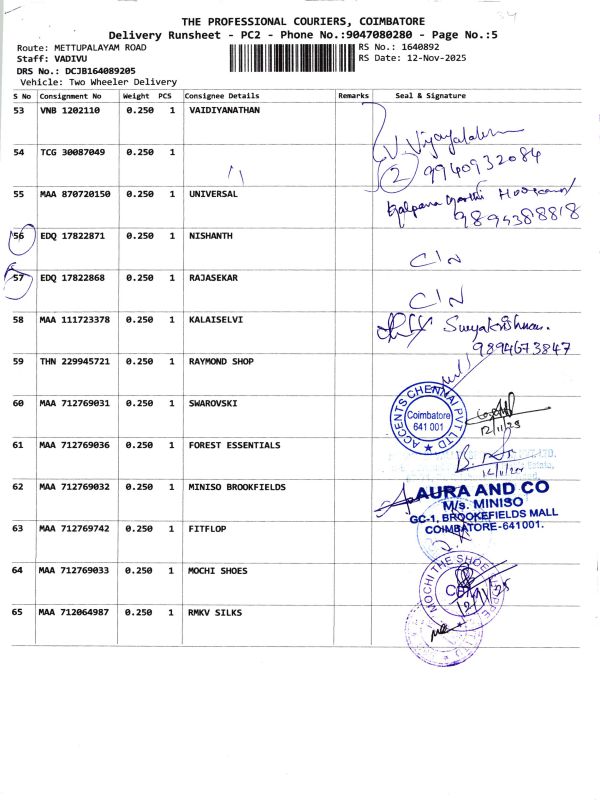 THE PROFESSIONAL COURIERS, COIMBATORE
Delivery Runsheet - PC2 - Phone No.:9047080280 - Page No.:5
Route: METTUPALAYAM ROAD
RS No.: 1640892
Staff: VADIVU
RS Date: 12-Nov-2025
DRS No.: DCJB164089205
Vehicle: Two Wheeler Delivery
S No Consignment No Weight PCS Consignee Details Remarks Seal & Signature
53 VNB 1202110 0.250 1 VAIDIYANATHAN
V. Vijayalakshmi
54 TCG 30087049 0.250 1
2 9940932084
55 MAA 870720150 0.250 1 UNIVERSAL
9894388818
56 EDQ 17822871 0.250 1 NISHANTH
C/N
57 EDQ 17822868 0.250 1 RAJASEKAR
C/N
58 MAA 111723378 0.250 1 KALAISELVI Suryakrishnan.
9894673847
59 THN 229945721 0.250 1 RAYMOND SHOP
60 MAA 712769031 0.250 1 SWAROVSKI
ACCENTS CHENNAI PVT LTD
Coimbatore
641 001
12/11/25
61 MAA 712769036 0.250 1 FOREST ESSENTIALS
62 MAA 712769032 0.250 1 MINISO BROOKFIELDS
AURA AND CO
M/s. MINISO
GC-1, BROOKEFIELDS MALL
COIMBATORE-641001.
63 MAA 712769742 0.250 1 FITFLOP
64 MAA 712769033 0.250 1 MOCHI SHOES
MOCHI THE SHOE
12/11/25
65 MAA 712064987 0.250 1 RMKV SILKS